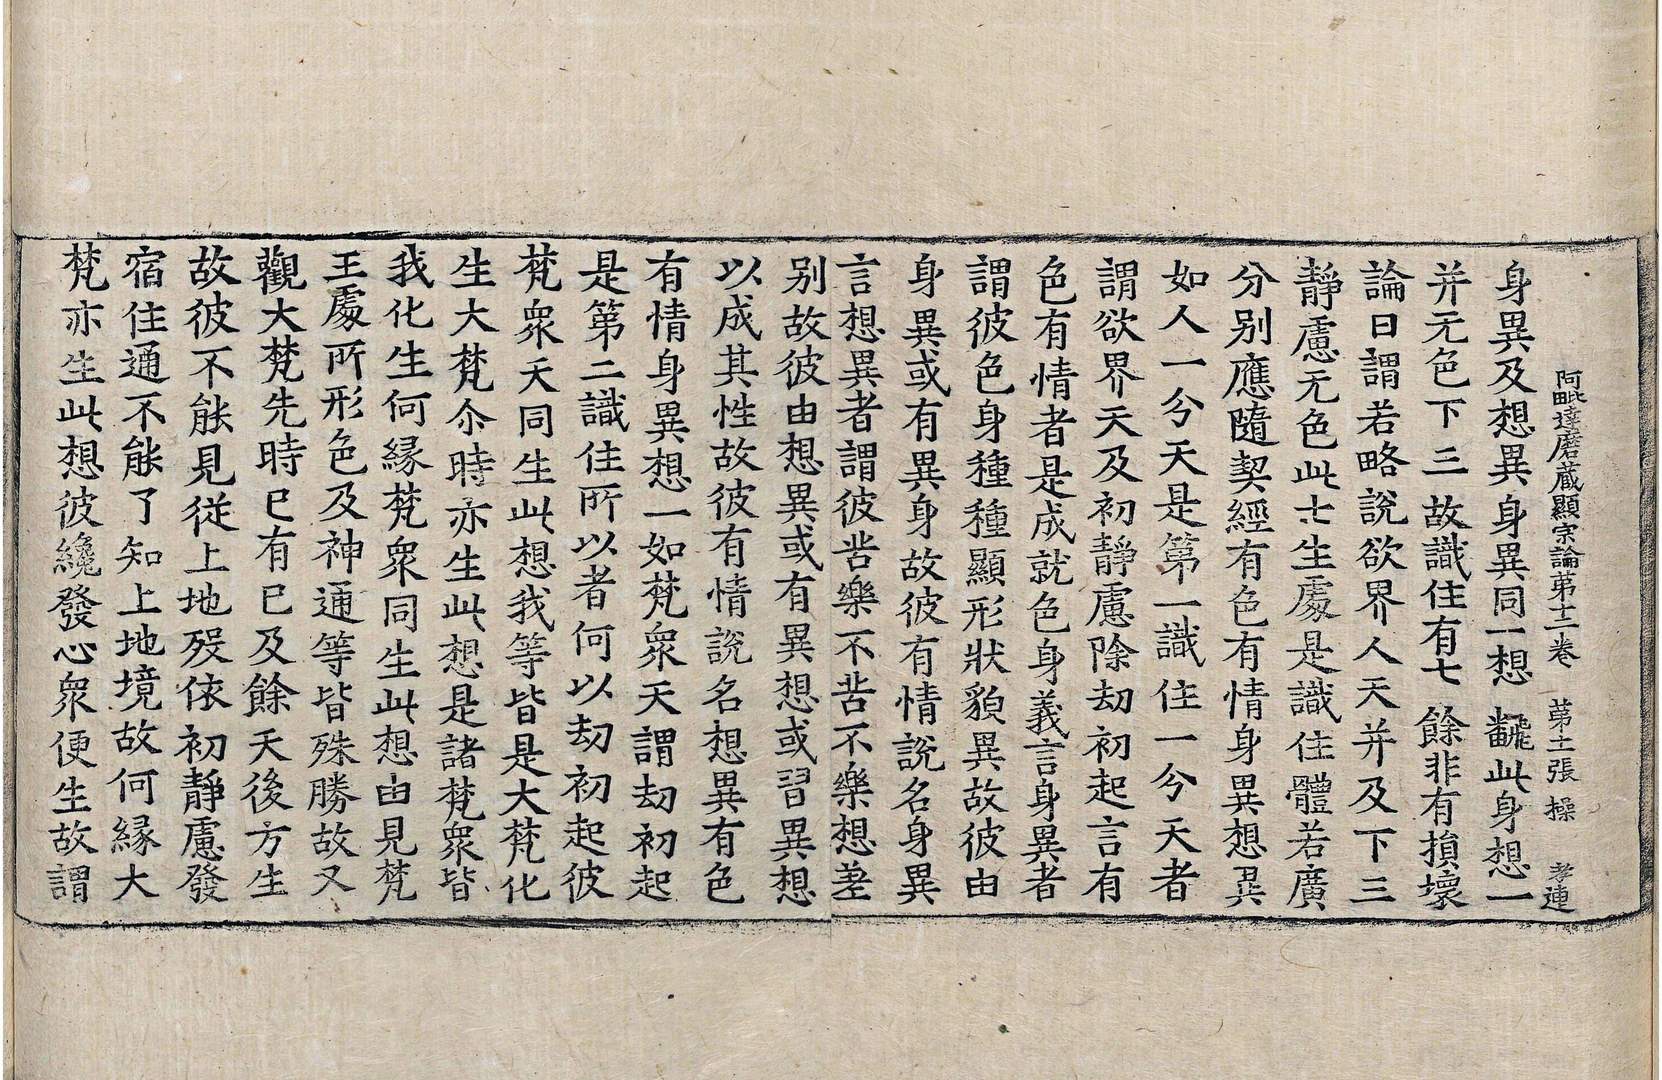 阿毗達磨藏顯宗論第十二卷　第十二張　操　孝連
身異及想異身異同一想　飜此身想一
并无色下三故識住有七　餘非有損壞
論曰謂若略說欲界人天并及下三
靜慮无色此七生處是識住體若廣
分別應隨契經有色有情身異想異
如人一分天是第一識住一分天者
謂欲界天及初靜慮除劫初起言有
色有情者是成就色身義言身異者
謂彼色身種種顯形狀貌異故彼由
身異或有異身故彼有情說名身異
言想異者謂彼苦樂不苦不樂想差
別故彼由想異或有異想或習異想
以成其性故彼有情說名想異有色
有情身異想一如梵衆天謂劫初起
是第二識住所以者何以劫初起彼
梵衆天同生此想我等皆是大梵化
生大梵尒時亦生此想是諸梵衆皆
我化生何緣梵衆同生此想由見梵
王處所形色及神通等皆殊勝故又
觀大梵先時已有已及餘天後方生
故彼不能見從上地歿依初靜慮發
宿住通不能了知上地境故何緣大
梵亦生此想彼纔發心衆便生故謂